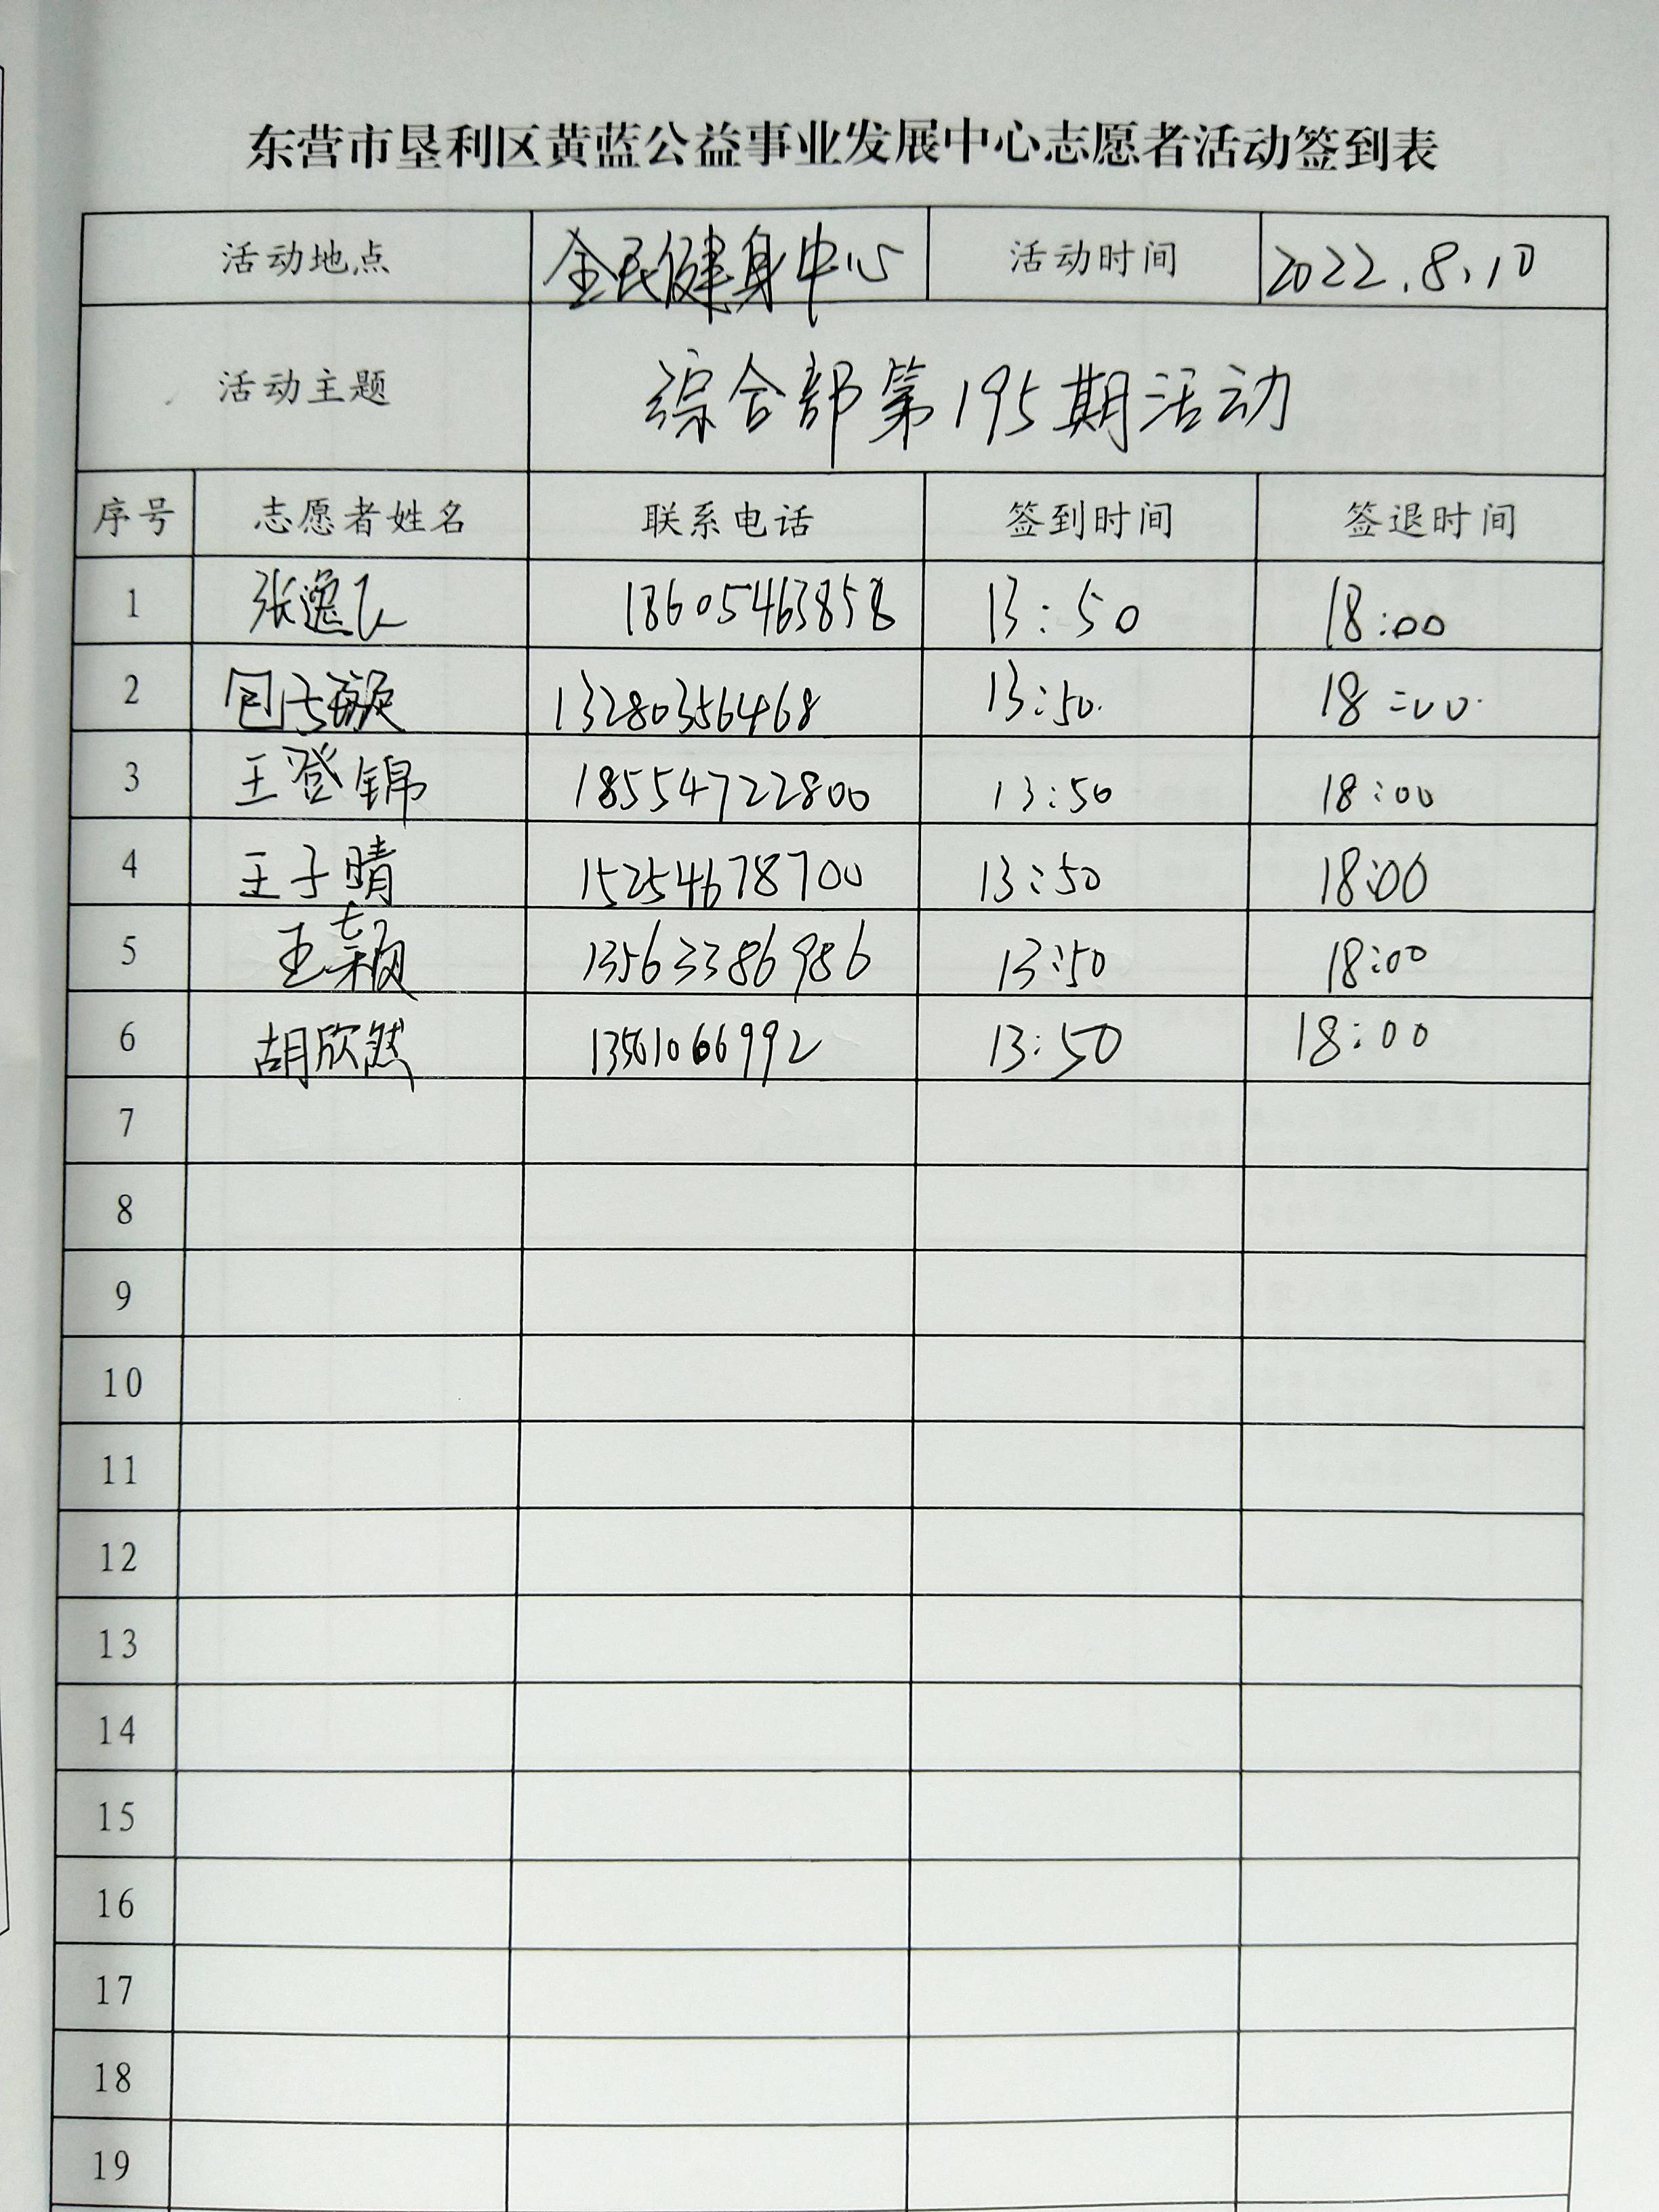 东营市垦利区黄蓝公益事业发展中心志愿者活动签到表
活动地点 全民健身中心 活动时间 2022.8.10
活动主题 综合部第195期活动
序号 志愿者姓名 联系电话 签到时间 签退时间
1 张逸飞 18605463858 13:50 18:00
2 13280356468 13:50 18:00
3 王登锦 18554722800 13:50 18:00
4 王子晴 15254678700 13:50 18:00
5 王颖 13563386986 13:50 18:00
6 胡欣然 13561066992 13:50 18:00
7
8
9
10
11
12
13
14
15
16
17
18
19